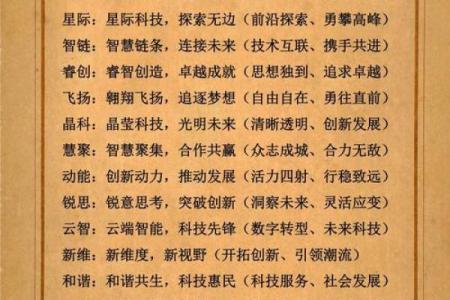 星际：星际科技，探索无边（前沿探索、勇攀高峰）
智链：智慧链条，连接未来（技术互联、携手共进）
睿创：睿智创造，卓越成就（思想独到、追求卓越）
飞扬：翱翔飞扬，追逐梦想（自由自在、勇往直前）
晶科：晶莹科技，光明未来（清晰透明、创新发展）
慧聚：智慧聚集，合作共赢（众志成城、合力无敌）
动能：创新动力，推动发展（活力四射、行稳致远）
锐思：锐意思考，突破创新（洞察未来、灵活应变）
云智：云端智能，科技先锋（数字转型、未来科技）
新维：新维度，新视野（开拓创新、引领潮流）
和谐：和谐共生，科技惠民（科技服务、社会发展）